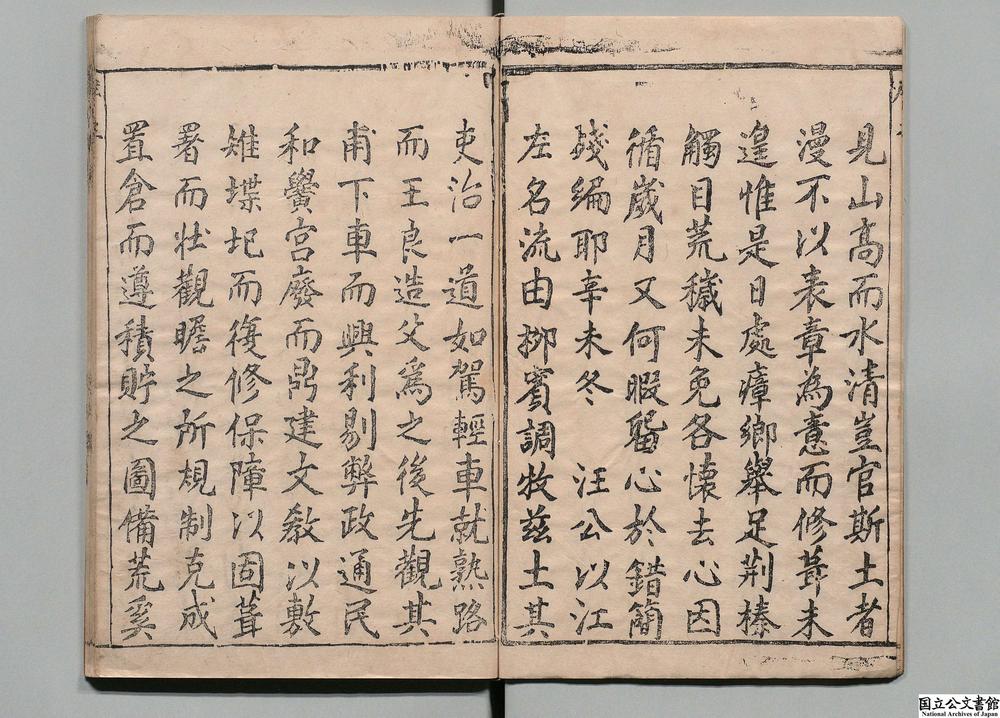 見山高而水清豈官斯土者
漫不以表章為意而修葺未
遑惟是日處瘴鄉舉足荆榛
觸目荒穢未免各懷去心因
循歲月又何暇留心於錯簡
殘編耶辛未冬　汪公以江
左名流由柳賓調牧兹土其
吏治一道如駕輕車就熟路
而王良造父爲之後先觀其
甫下車而興利剔弊政通民
和黌宮廢而鼎建文教以敷
雉堞圮而復修保障以固葺
署而壯觀瞻之所規制克成
置倉而遵積貯之圖備荒奚
国立公文書館
National Archives of Japan